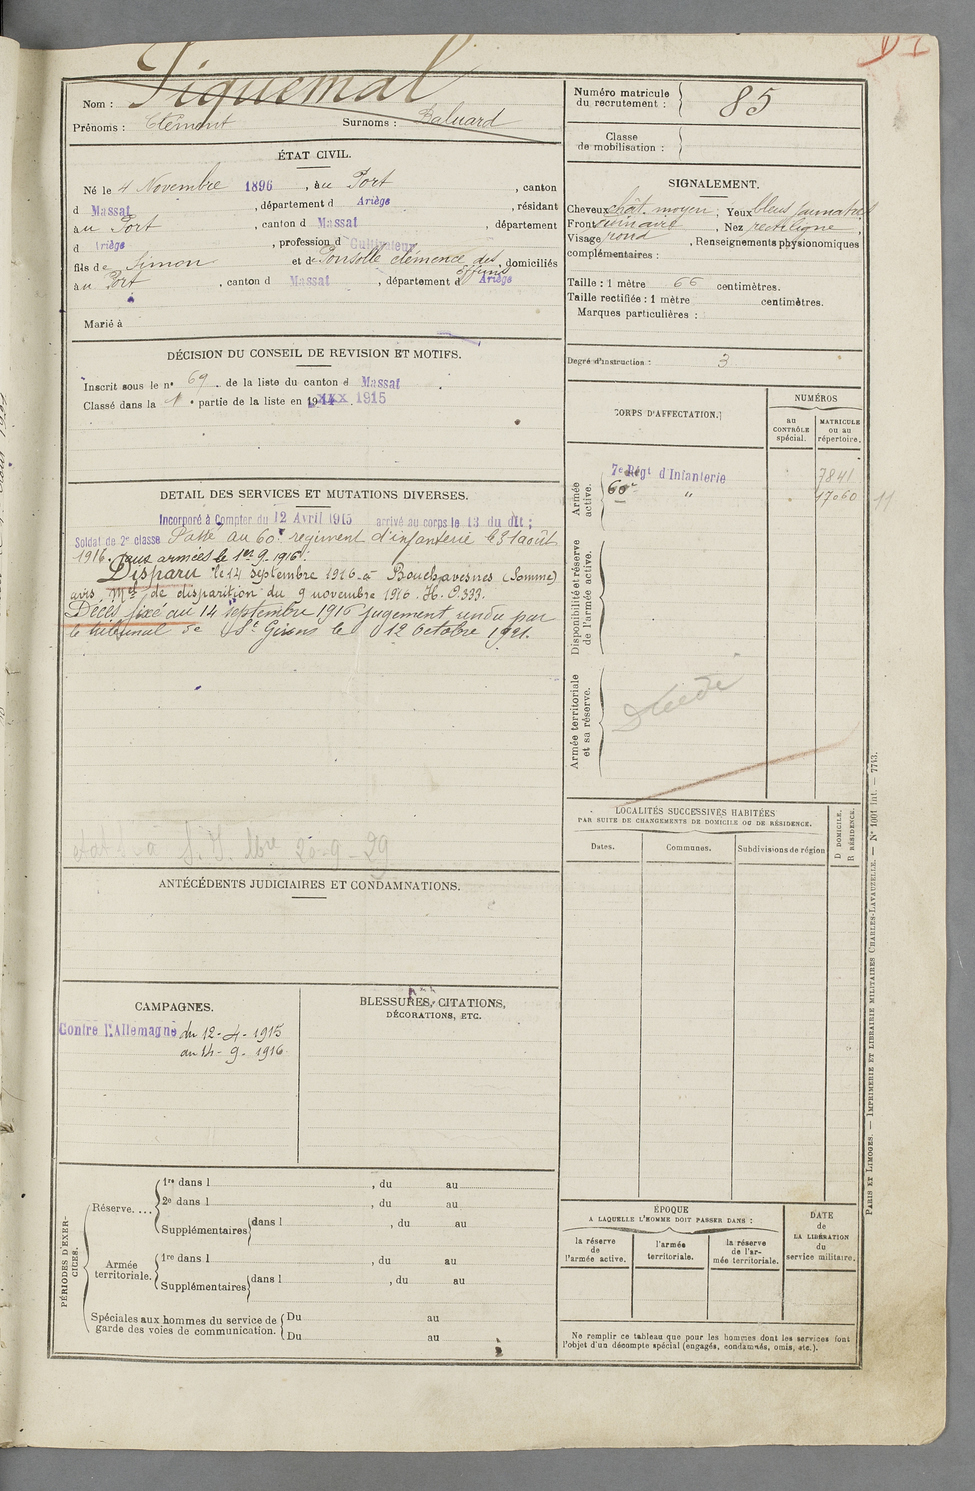 D I
Nom : Piquemal
Prénoms : Clément Surnoms : Baluard
Numéro matricule du recrutement : 85
Classe de mobilisation :
ÉTAT CIVIL.
Né le 4 Novembre 1896, au Port, canton
d Massat, département d Ariège, résidant
au Port, canton d Massat, département
d Ariège, profession d Cultivateur
fils de Simon et de Ponsolle clémence des défunts, domiciliés
au Port, canton d Massat, département d Ariège
Marié à
SIGNALEMENT.
Cheveux chât. moyen, Yeux bleus jaunatres
Front ordinaire, Nez rectiligne,
Visage rond, Renseignements physionomiques
complémentaires :
Taille : 1 mètre 66 centimètres.
Taille rectifiée : 1 mètre centimètres.
Marques particulières :
Degré d'instruction : 3
DÉCISION DU CONSEIL DE REVISION ET MOTIFS.
Inscrit sous le n° 69 de la liste du canton d Massat.
Classé dans la 1e partie de la liste en 1915
DETAIL DES SERVICES ET MUTATIONS DIVERSES.
Incorporé à Compter du 12 Avril 1915 arrivé au corps le 13 du dit ;
Soldat de 2e classe Passé au 60e régiment d'infanterie le 31 août
1916. aux armées le 1er 9-1916.
Disparu le 14 septembre 1916 à Bouchavesnes (Somme)
avis Mel de disparition du 9 novembre 1916. H. O.333.
Décès fixé au 14 septembre 1916 jugement rendu par
le tribunal de St Girons le 12 octobre 1921.
20-9-29
CORPS D'AFFECTATION.
NUMÉROS
au CONTRÔLE spécial.
MATRICULE ou au répertoire.
Armée active.
7e Régt d'Infanterie 7841
60e " 17060 11
Disponibilité et réserve de l'armée active.
Armée territoriale et sa réserve.
LOCALITÉS SUCCESSIVES HABITÉES
PAR SUITE DE CHANGEMENTS DE DOMICILE OU DE RÉSIDENCE.
Dates. Communes. Subdivisions de région
D DOMICILE.
R RÉSIDENCE.
ANTÉCÉDENTS JUDICIAIRES ET CONDAMNATIONS.
CAMPAGNES.
Contre l'Allemagne du 12-4-1915
au 14-9-1916.
BLESSURES, CITATIONS,
DÉCORATIONS, ETC.
PÉRIODES D'EXERCICES.
Réserve....
1re dans l , du au
2e dans l , du au
Supplémentaires dans l , du au
Armée territoriale.
1re dans l , du au
Supplémentaires dans l , du au
Spéciales aux hommes du service de
garde des voies de communication.
Du au
Du au
ÉPOQUE
A LAQUELLE L'HOMME DOIT PASSER DANS :
la réserve de l'armée active.
l'armée territoriale.
la réserve de l'armée territoriale.
DATE de LA LIBÉRATION du service militaire.
Ne remplir ce tableau que pour les hommes dont les services font
l'objet d'un décompte spécial (engagés, condamnés, omis, etc.).
PARIS ET LIMOGES. — IMPRIMERIE ET LIBRAIRIE MILITAIRES CHARLES-LAVAUZELLE. — N° 1001 int. — 7743.